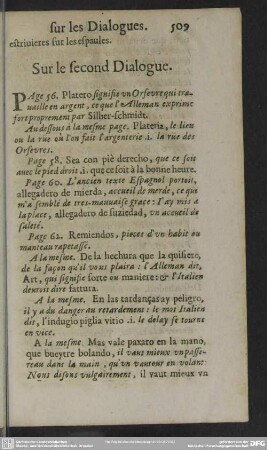 sur les Dialogues. 509
estrivieres sur les espaules.
Sur le second Dialogue.
PAge 56. Platero signifie vn Orfevre qui tra-
vaille en argent, ce que l'Alleman exprime
fort proprement par Silber-schmidt.
Au dessous a la mesme page. Plateria, le lieu
ou la rue ou l'on fait l'argenterie .i. la rue des
Orfevres.
Page 58. Sea con piè derecho, que ce soit
avec le pied droit .i. que ce soit à la bonne heure.
Page 60. L'ancien texte Espagnol portoit,
allegadero de mierda, accueil de merde, ce qui
m'a semblé de tres-mauvaise grace: I'ay mis a
la place, allegadero de suziedad, vn accueil de
saleté.
Page 62. Remiendos, pieces d'vn habit ou
manteau rapetassé.
A la mesme. De la hechura que la quisiere,
de la façon qu'il vous plaira: l'Alleman dit,
Art, qui signifie sorte ou maniere: & l'Italien
devroit dire fattura.
A la mesme. En las tardanças ay peligro,
il y a du danger au retardement: le mot Italien
dit, l'indugio piglia vitio .i. le delay se tourne
en vice.
A la mesme. Mas vale paxaro en la mano,
que bueytre bolando, il vaut mieux vn passe-
reau dans la main, qu'vn vautour en volant:
Nous disons vulgairement, il vaut mieux vn